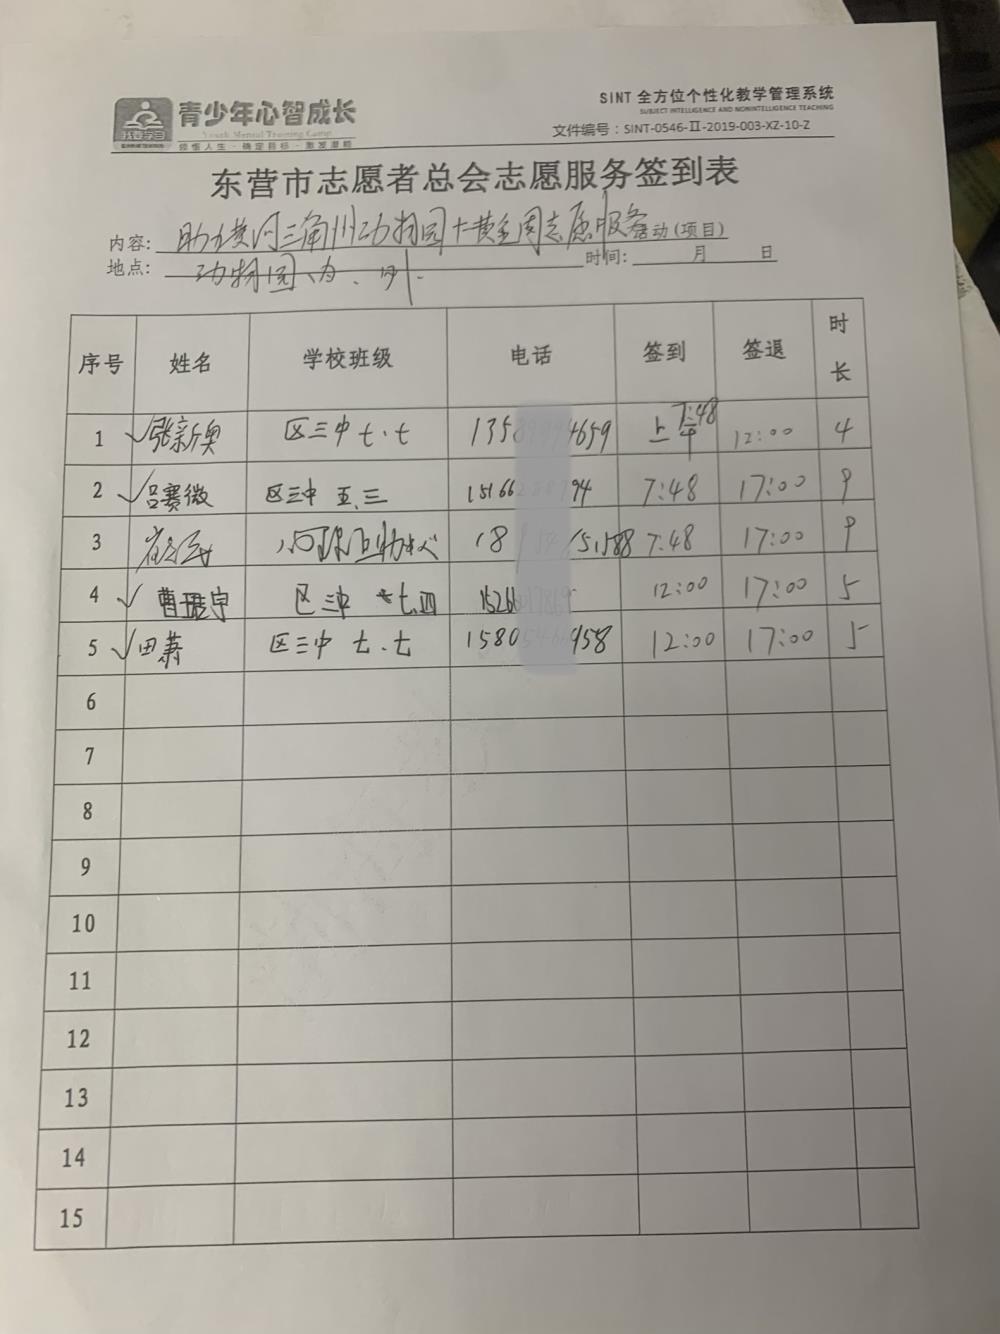 青少年心智成长
Youth Mental Training Camp
领悟人生·确定目标·激发潜能
SINT 全方位个性化教学管理系统
SUBJECT INTELLIGENCE AND NONINTELLIGENCE TEACHING
文件编号：SINT-0546-Ⅱ-2019-003-XZ-10-Z
东营市志愿者总会志愿服务签到表
内容： 助力黄河三角洲动物园十一黄金周志愿服务 活动(项目)
地点： 动物园内、外 时间： 月 日
序号 姓名 学校班级 电话 签到 签退 时长
1 张新奥 区三中 七.七 135 4659 上午 7:48 12:00 4
2 吕赛微 区三中 五.三 15166 94 7:48 17:00 9
3 18 7:48 17:00 9
4 曹 宁 区三中 七.四 15266 12:00 17:00 5
5 田萧 区三中 七.七 1580 958 12:00 17:00 5
6
7
8
9
10
11
12
13
14
15